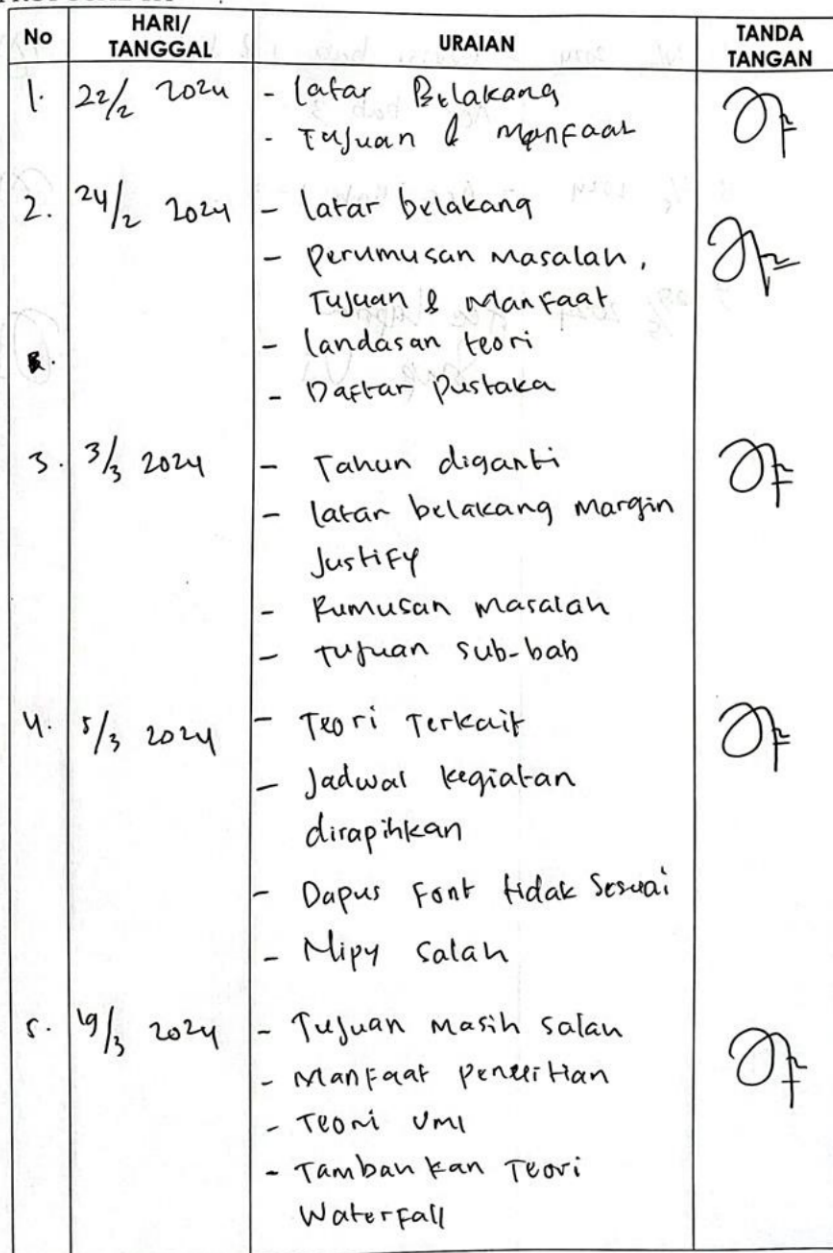 No HARI/ TANGGAL URAIAN TANDA TANGAN
1. 22/2 2024 - Latar Belakang
- Tujuan & Manfaat
2. 24/2 2024 - latar belakang
- Perumusan Masalah,
Tujuan & Manfaat
- landasan teori
- Daftar Pustaka
3. 3/3 2024 - Tahun diganti
- latar belakang Margin
Justify
- Rumusan Masalah
- Tujuan sub-bab
4. 5/3 2024 - Teori Terkait
- Jadwal kegiatan
dirapihkan
- Dapus Font tidak Sesuai
- salah
5. 19/3 2024 - Tujuan Masih salah
- Manfaat Penelitian
- Teori UML
- Tambahkan Teori
Waterfall